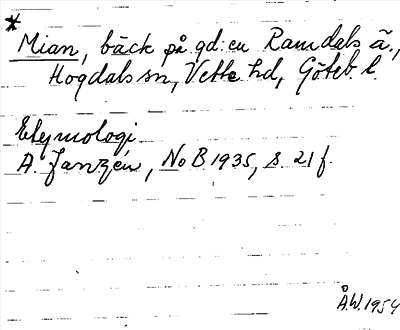 * Mian, bäck på gd:en Ramdals ä.,
Hogdals sn, Vette hd, Göteb l.
Etymologi.
A. Janzén, NoB 1935, s. 21 f.
Å.W. 1954